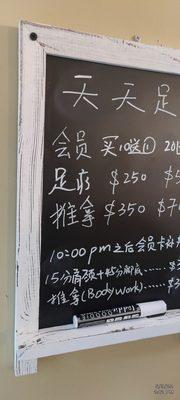 天天足
会员 买10送①
足疗 $250
推拿 $350
10:00pm之后会员卡
15分肩颈+45分脚底......
推拿(Body work)......